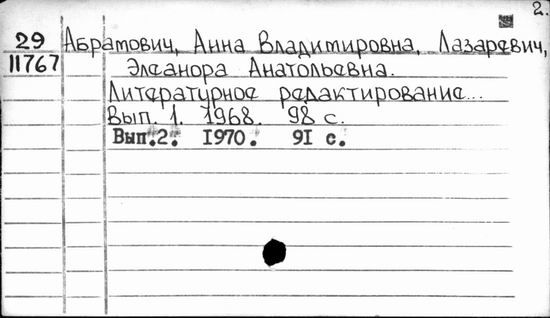 2.
29 Абрамович, Анна Владимировна, Лазаревич,
11767 Элеанора Анатольевна.
Литературное редактирование...
Вып. 1. 1968. 98 с.
Вып.2. 1970. 91 с.